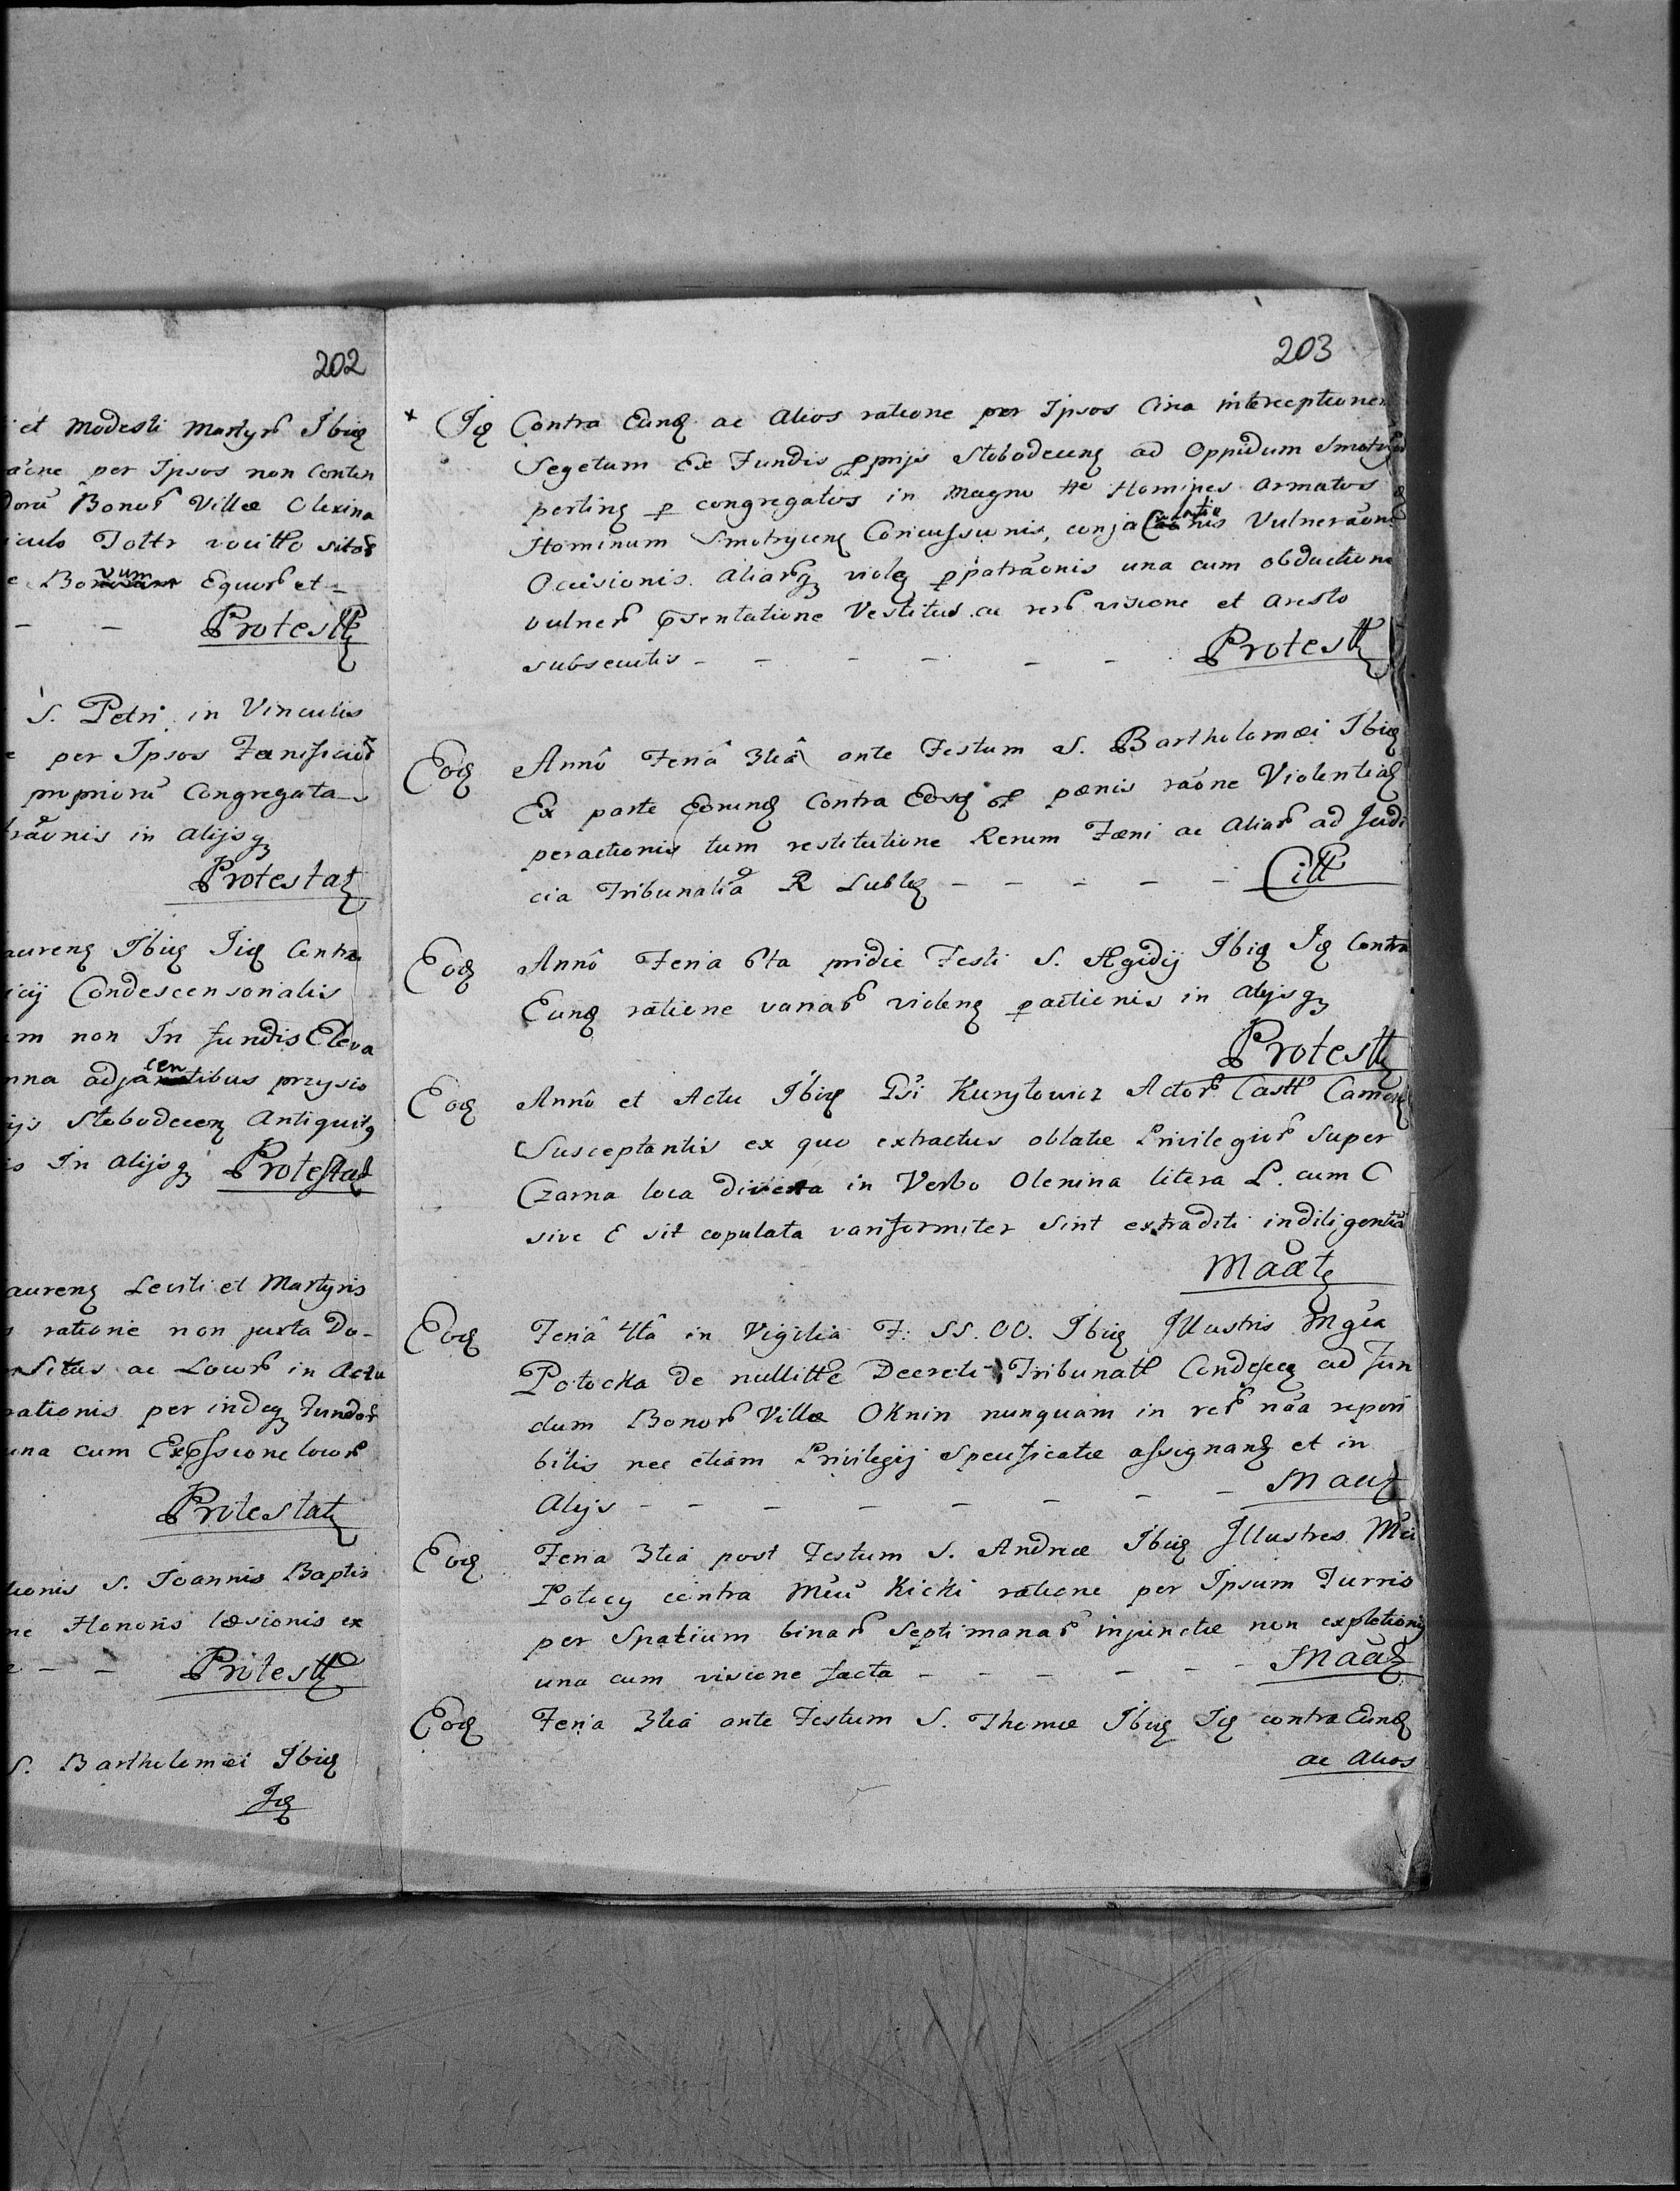 202
et Modesti Martyr Ibiq
per Ipsos non Conten
Bonor Villæ Olexina
Toltr sitor
vum
Equor et
Protestt
S. Petri in Vinculis
per Ipsos Fænificior
propriorū Congregata
in alijsq
Protestat
Ibiq Iiq Contra
Condescensorialis
non In fundis Eleva
cen
adjatibus przysio
Slobodecen Antiquit
In alijsq Protestat
Lauren Levitæ et Martyris
ratione non juxta Do-
Situs ac Locor in Actu
rationis per indeq Fundor
una cum Expssione locor
Protestat
S. Joannis Baptis
Honoris læsionis ex
Protestt
S. Bartholomæi Ibiq
Iq
203
× Iq Contra Eunq ac Alios ratione per Ipsos Circa interceptionem
Segetum Ex Fundis pprijs Slobodecenq ad Oppidum Smotryc
pertinq p congregatos in Magno Nro Homines Armatos
Hominum Smotrycenq Concussionis, Vulneraōn
Occisionis Aliarq violq ppatraōnis una cum obductione
vulner psentatione Vestitus ac rer visione et Aresto
subsecutis - - - - - - Protestt
Eoq Annô Feriâ 3tiâ ante Festum S. Bartholomæi Ibiq
Ex parte Eorunq Contra Eosq p pænis raōne Violentiar
peractionis tum restitutione Rerum Fæni ac Aliar ad Judi
cia Tribunalia R Lublq - - - - - Citt
Eoq Annô Feria 6ta pridie Festi S. Ægidij Ibiq Iq Contra
Eunq ratione variar violenq pactionis in alijsq
Protestt
Eoq Annô et Actu Ibiq Gsi Kuryłowicz Actor Castr Camenq
Susceptantis ex quo extractus oblatæ Privilegior super
Czarna loca diversa in Verbo Olenina litera L. cum C
sive E sit copulata variformiter sint extraditi indiligentiâ
Maātq
Eoq Feriâ 4tâ in Vigilia F: SS. OO. Ibiq Illustris Mgca
Potocka de nullitte Decreti Tribunatt Condescq ad fun
dum Bonor Villæ Oknin nunquam in rer nāa reperi
bilis nec etiam Privilegij Specificatæ assignanq et in
Alijs - - - - - - - - Maātq
Eoq Feria 3tia post Festum S. Andreæ Ibiq Illustres Mci
Potocy contra Mcū Kicki ratione per Ipsum Turris
per Spatium binar Septimanar injunctæ non expletionis
una cum visione facta - - - - - - Maātq
Eoq Feria 3tia ante Festum S. Thomæ Ibiq Iq contra Eunq
ac Alios